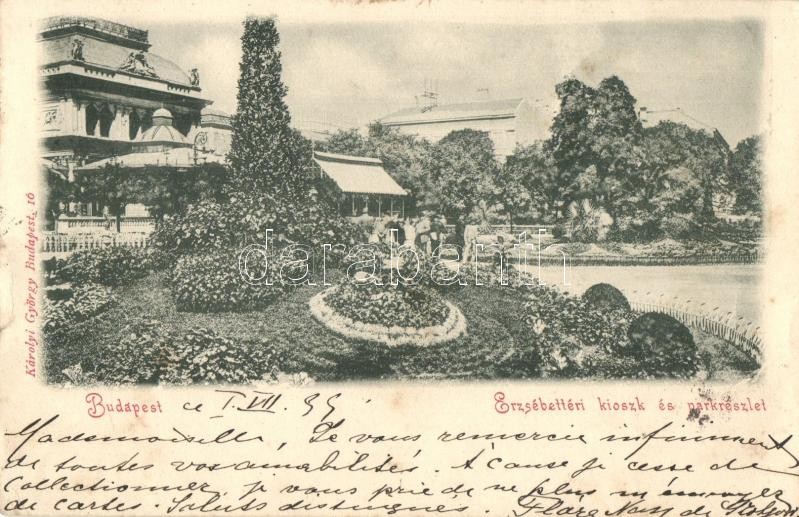 Károlyi György Budapest. 16
darabanth
Budapest ce I. VII. 99.
Erzsébettéri kioszk és parkrészlet
Mademoiselle, Je vous remercie infiniment
de toutes vos amabilités. A cause je cesse de
collectionner, je vous prie de ne plus m'envoyer
de cartes. Saluts distingués.